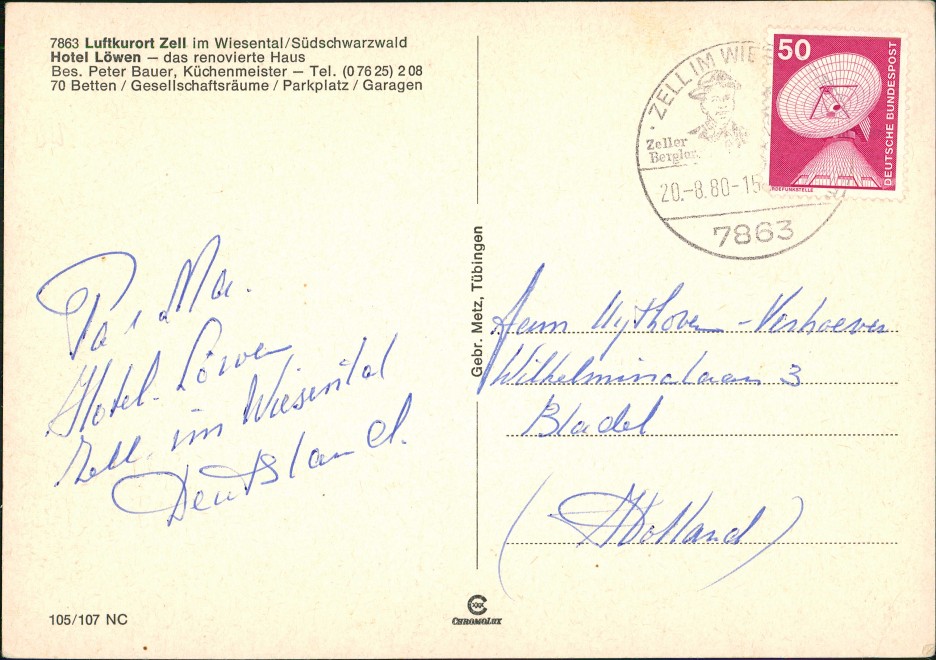 7863 Luftkurort Zell im Wiesental/Südschwarzwald
Hotel Löwen – das renovierte Haus
Bes. Peter Bauer, Küchenmeister – Tel. (0 76 25) 2 08
70 Betten / Gesellschaftsräume / Parkplatz / Garagen
ZELL IM WIES
Zeller
Bergler
20.-8.80-15
7863
50
DEUTSCHE BUNDESPOST
ERDEFUNKSTELLE
Pa & Ma.
Hotel. Löwen
Zell. im Wiesental
Deutsland.
Gebr. Metz, Tübingen
Fam Uythoven - Verhoeven
Wilhelminalaan 3
Bladel
(Holland)
105/107 NC
CHROMOLUX